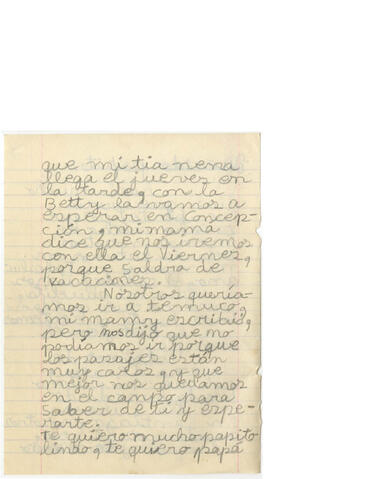 que mi tia nena
llega el jueves en
la tarde, con la
Betty la vamos a
esperar en Concep-
ción, mi mama
dice que nos iremos
con ella el Viernes,
porque Saldra de
Vacaciones.
Nosotros quería-
mos ir a temuco,
mi mami escribió,
pero nos dijo que no
podíamos ir porque
los pasajes están
muy carlos, y que
mejor nos quedamos
en el campo para
Saber de ti y espe-
rarte.
Te quiero mucho papito
lindo, te quiero papá